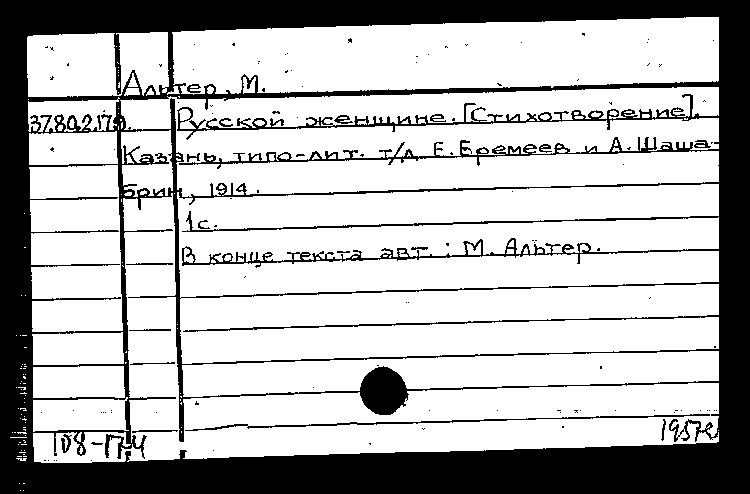 Альтер, М.
37.80.2.179. Русской женщине. [Стихотворение].
Казань, типо-лит. т/д Е. Еремеев и А. Шаша-
брин, 1914.
1 с.
В конце текста авт.: М. Альтер.
108-174